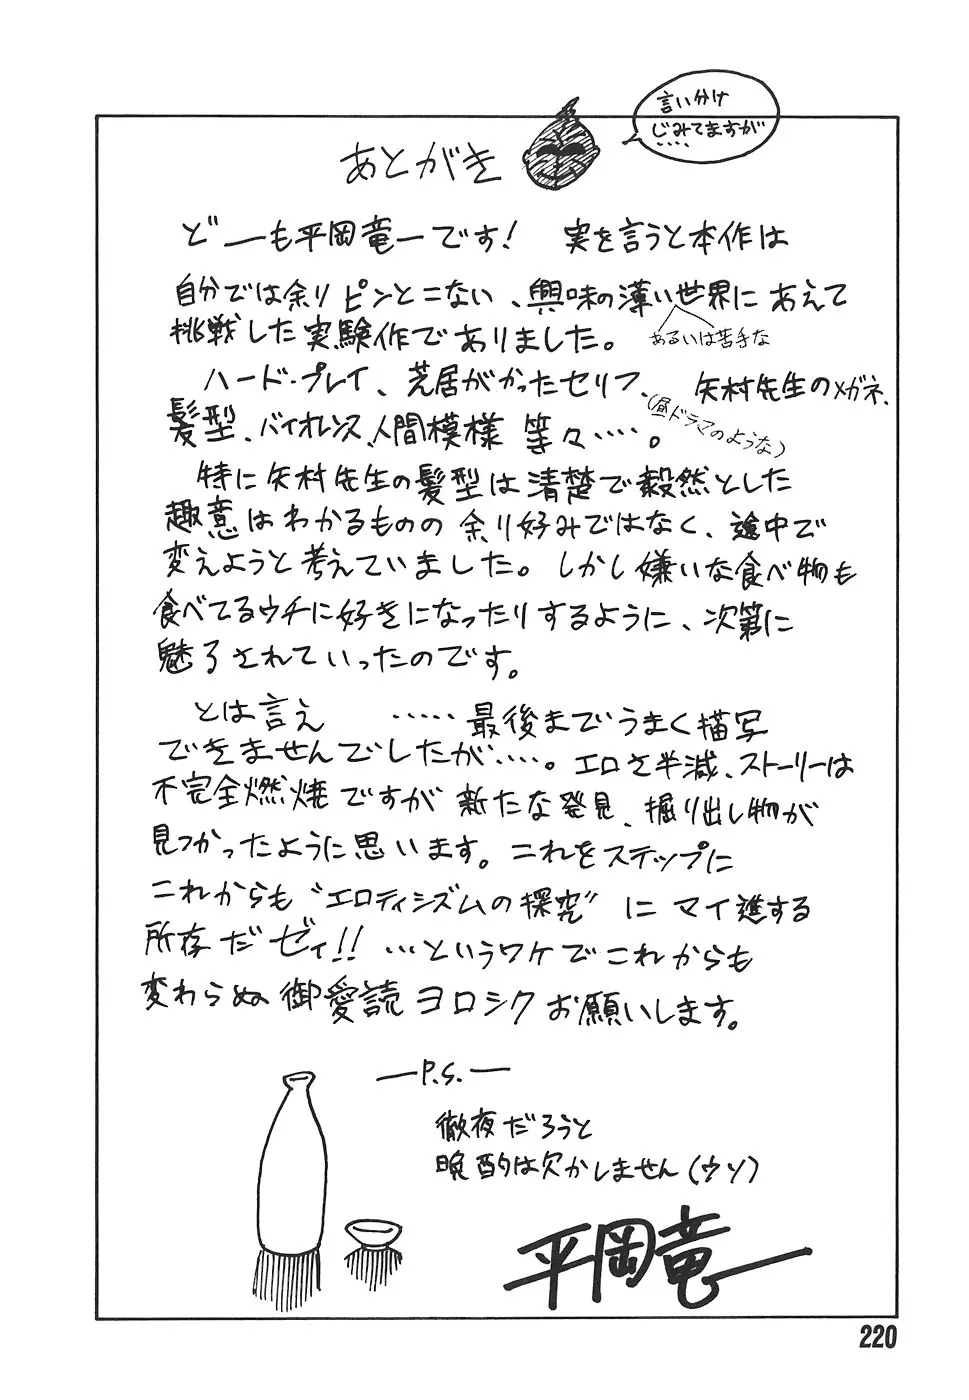 言い分け
じみてますが
‥‥
あとがき
どーも平岡竜一です! 実を言うと本作は
自分では余りピンとこない、興味の薄い世界にあえて
あるいは苦手な
挑戦した実験作でありました。
ハード・プレイ、芝居がかったセリフ、矢村先生のメガネ、
髪型、バイオレンス、人間模様 等々‥‥。
(昼ドラマのような)
特に矢村先生の髪型は清楚で毅然とした
趣意はわかるものの 余り好みではなく、途中で
変えようと考えていました。しかし嫌いな食べ物も
食べてるウチに好きになったりするように、次第に
魅了されていったのです。
とは言え ‥‥‥最後までうまく描写
できませんでしたが‥‥。エロさ半減、ストーリーは
不完全燃焼ですが 新たな発見、掘り出し物が
見つかったように思います。これをステップに
これからも“エロティシズムの探究”に マイ進する
所存だゼィ!! …というワケでこれからも
変わらぬ御愛読 ヨロシクお願いします。
―P.S.―
徹夜だろうと
晩酌は欠かしません(ウソ)
平岡竜一
220